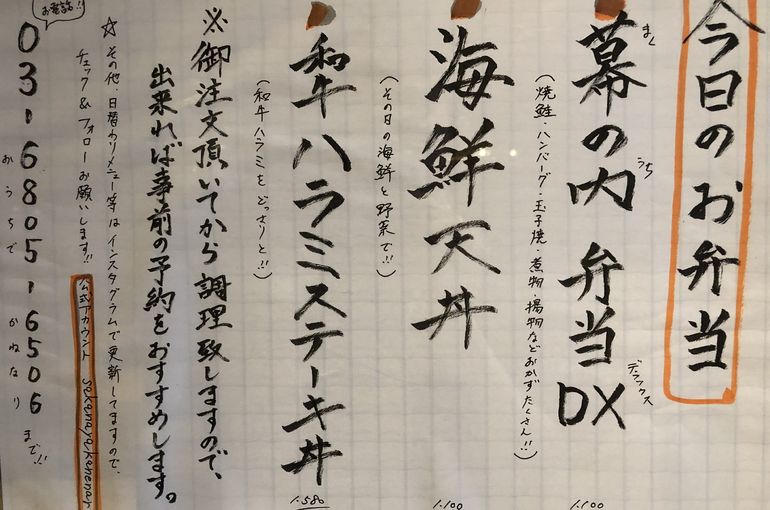 今日のお弁当
幕の内弁当DX
まく
うち
デラックス
(焼鮭・ハンバーグ・玉子焼・煮物・揚物などおかずたくさん!!)
1.100
海鮮天丼
(その日の海鮮と野菜で!!)
1.100
和牛ハラミステーキ丼
(和牛ハラミをどっさりと!!)
1.580
※御注文頂いてから調理致しますので、
出来れば事前の予約をおすすめします。
☆その他、日替わりメニュー等はインスタグラムで更新してますので、
チェック&フォローお願いします!!
公式アカウント
お電話
03-6805-6506 まで!!
おうちで
かねなり